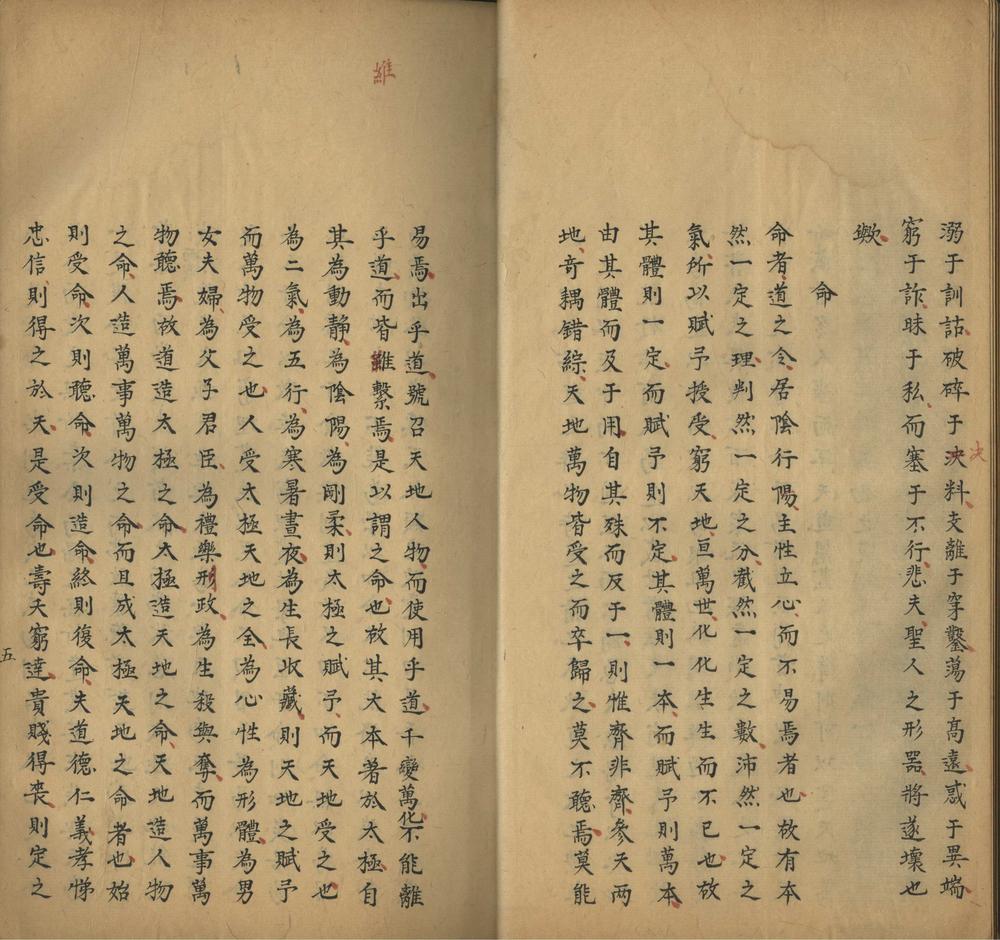 溺于訓詁破碎于決料支離于穿鑿蕩于高遠惑于異端
決
窮于詐昧于私而塞于不行悲夫聖人之形器將遂壞也
歟
命
命者道之令居陰行陽主性立心而不易焉者也故有本
然一定之理判然一定之分截然一定之數沛然一定之
氣所以賦予授受窮天地亘萬世化化生生而不已也故
其體則一定而賦予則不定其體則一本而賦予則萬本
由其體而及于用自其殊而反于一則惟齊非齊參天兩
地奇耦錯綜天地萬物皆受之而卒歸之莫不聽焉莫能
易焉出乎道號召天地人物而使用乎道千變萬化不能離
維
乎道而皆維繫焉是以謂之命也故其大本著於太極自
其為動靜為陰陽為剛柔則太極之賦予而天地受之也
為二氣為五行為寒暑晝夜為生長收藏則天地之賦予
而萬物受之也人受太極天地之全為心性為形體為男
女夫婦為父子君臣為禮樂刑政為生殺與奪而萬事萬
物聽焉故道造太極之命太極造天地之命天地造人物
之命人造萬事萬物之命而且成太極天地之命者也始
則受命次則聽命次則造命終則復命夫道德仁義孝悌
忠信則得之於天是受命也壽夭窮達貴賤得喪則定之
五